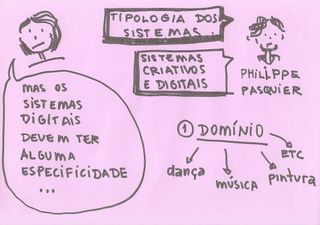 TIPOLOGIA DOS
SISTEMAS
SISTEMAS
CRIATIVOS
E DIGITAIS
PHILIPPE
PASQUIER
MAS OS
SISTEMAS
DIGITAIS
DEVEM TER
ALGUMA
ESPECIFICIDADE
...
1 DOMÍNIO
dança
música
pintura
ETC